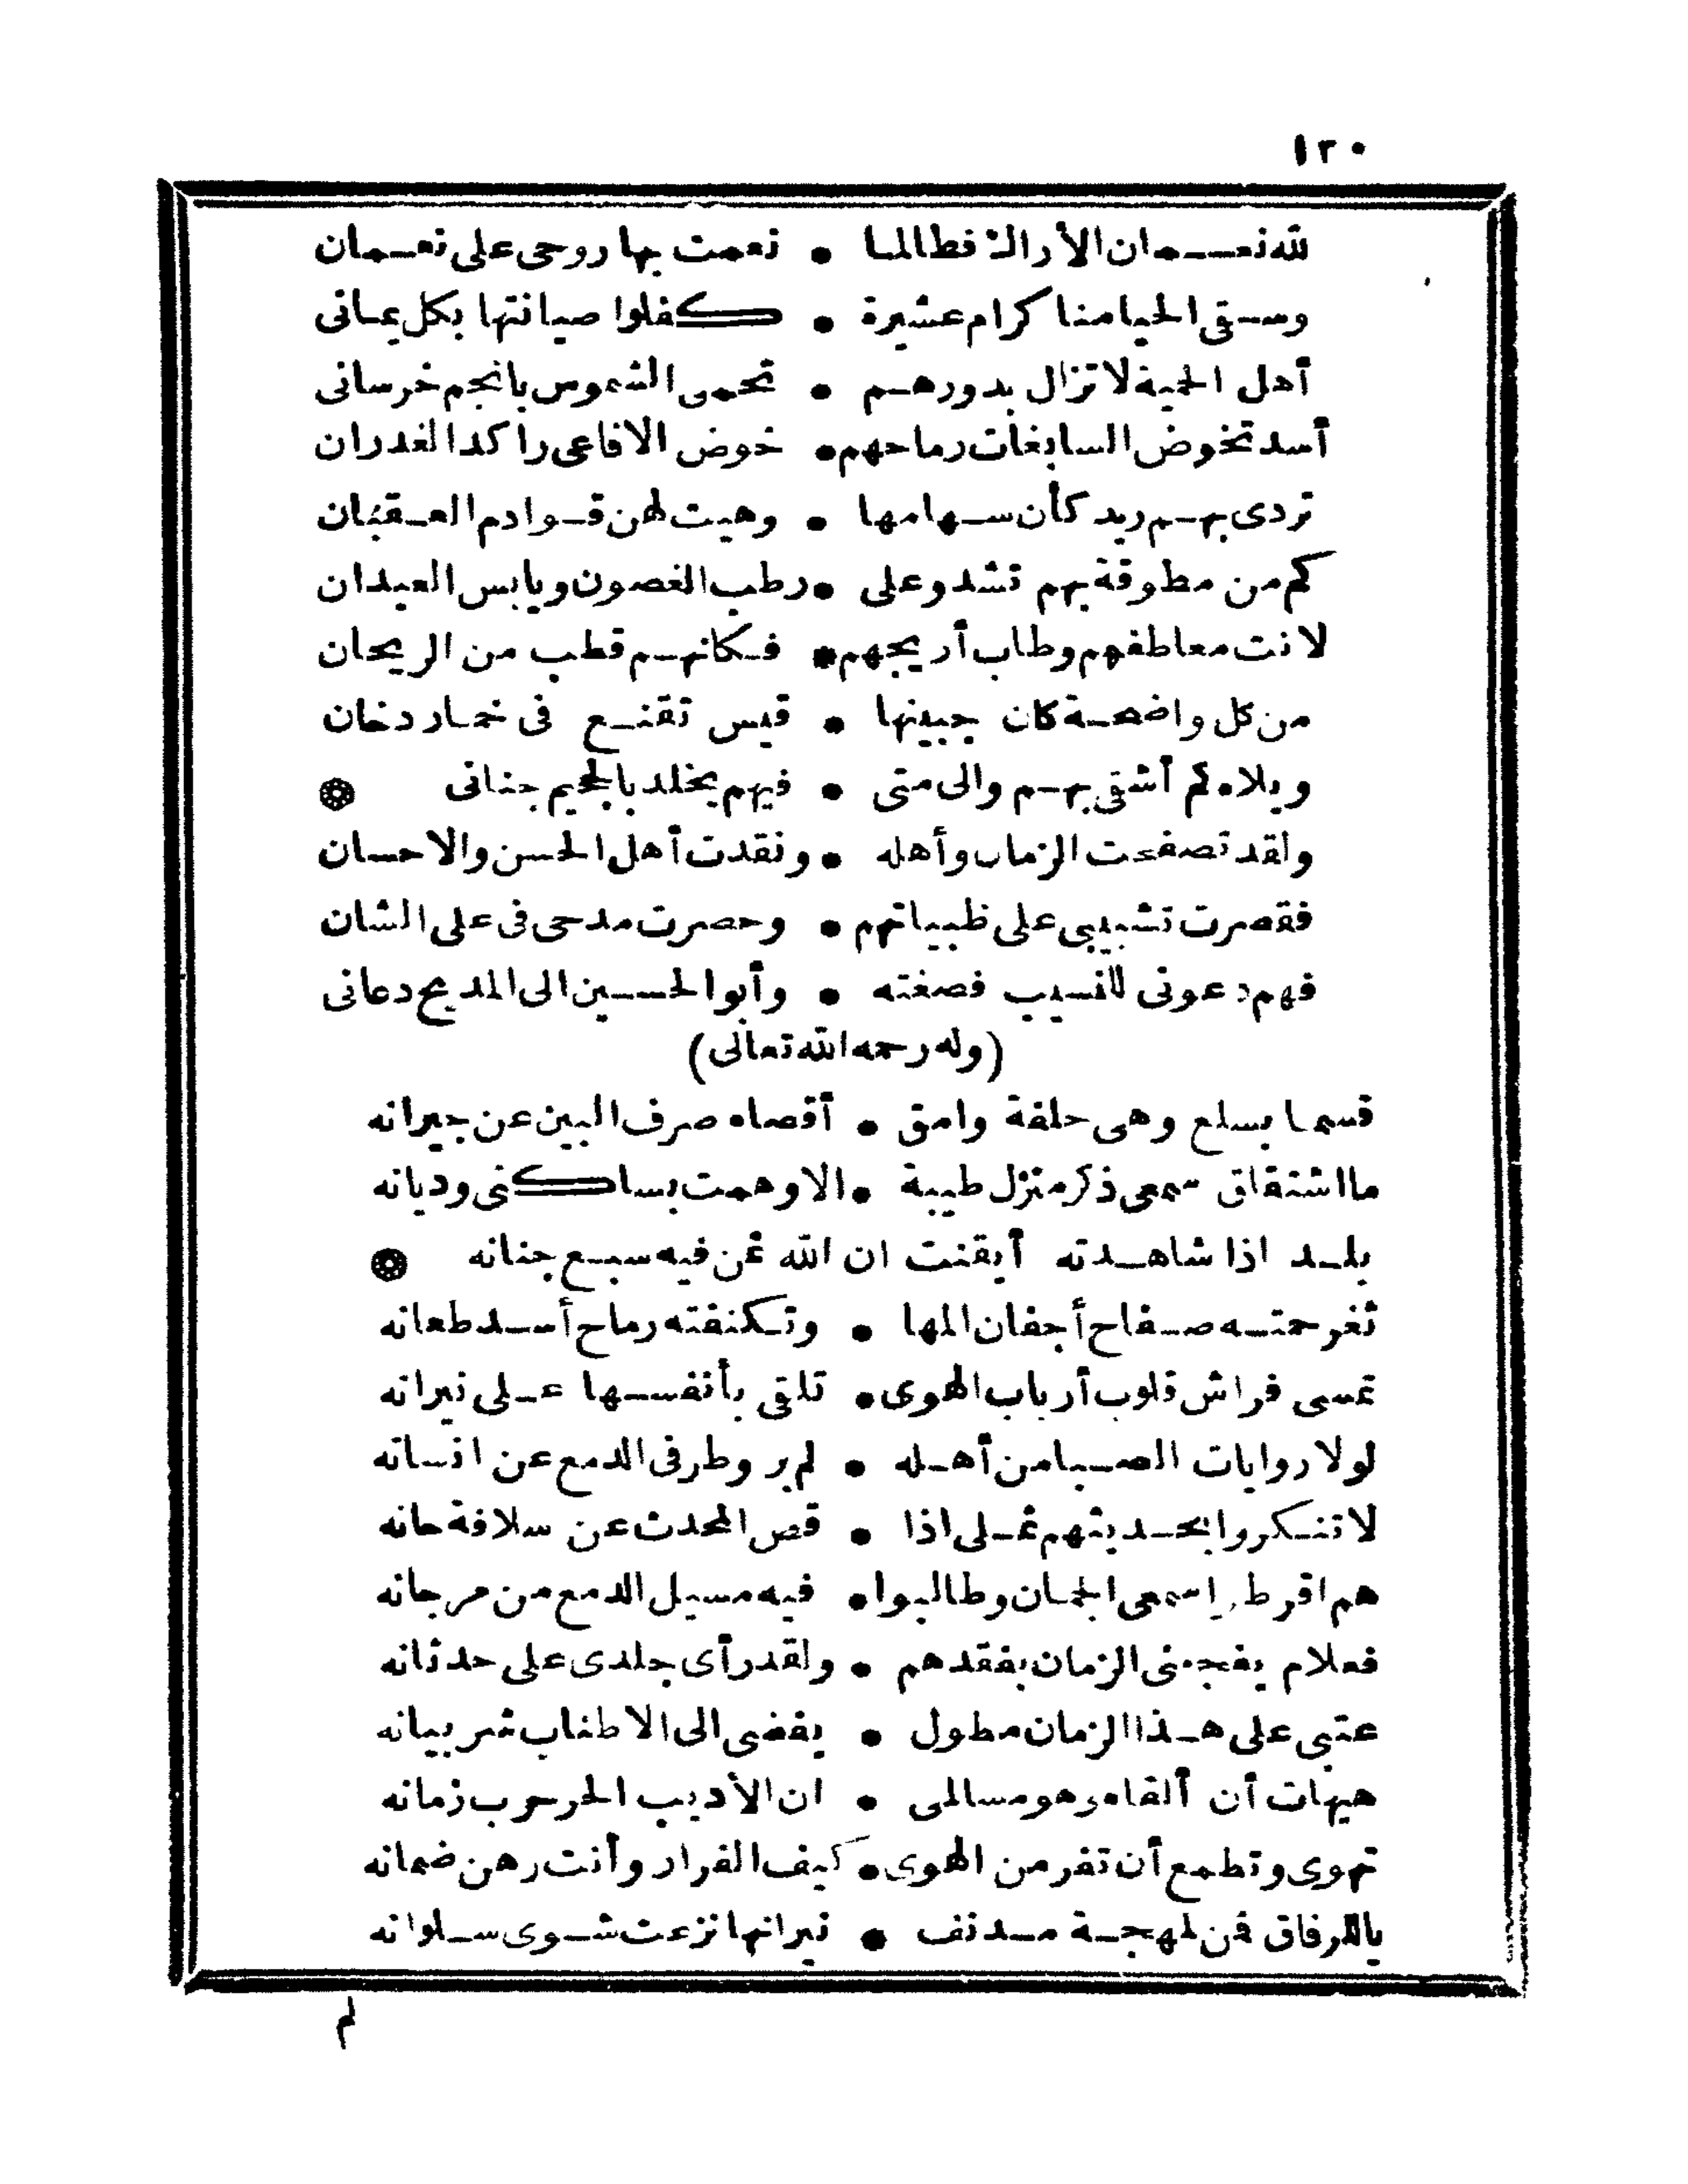 ١٢٠
لله نعمان الأراك فطالما • نعمت بها روحى على نعمان
وسقى الحيا منا كرام عشيرة • كفلوا صيانتها بكل يمانى
أهل الحمية لا تزال بدورهم • تحمى الشموس بانجم خرسانى
أسد تخوض السابغات رماحهم • خوض الافاعى راكد الغدران
تردى بهم ربد كأن سهامها • وهبت لهن قوادم العقبان
كم من مطوقة بهم تشدو على • رطب الغصون ويابس العيدان
لانت معاطفهم وطاب أريجهم • فكانهم قطب من الريحان
من كل واضحة كان جبينها • قبس تقنع فى خمار دخان
ويلاه كم أشقى بهم والى متى • فيهم يخلد بالجحيم جنانى
ولقد تصفحت الزمان وأهله • ونقدت أهل الحسن والاحسان
فقصرت تشبيبى على ظبياتهم • وحصرت مدحى فى على الشان
فهم دعونى للنسيب فصغته • وأبو الحسين الى المديح دعانى
(وله رحمه الله تعالى)
قسما بسلع وهى حلفة وامق • أقصاه صرف البين عن جيرانه
ما اشتقاق سمعى ذكر منزل طيبة • الا وهمت بساكنى وديانه
بلد اذا شاهدته أيقنت ان الله ثمن فيه سبع جنانه
ثغر حمته صفاح أجفان المها • وتكنفته رماح أسد طعانه
تمسى فراش قلوب أرباب الهوى • تلقى بأنفسها على نيرانه
لولا روايات الصبا من أهله • لم يرو طرفى الدمع عن انسانه
لا تنكروا بحديثهم ثملى اذا • قص المحدث عن سلافة حانه
هم اقرطوا سمعى الجمان وطالبوا • فيه مسيل الدمع من مرجانه
فعلام يفجعنى الزمان بفقدهم • ولقد رأى جلدى على حدثانه
عتبى على هذا الزمان مطول • يفضى الى الاطناب شر بيانه
هيهات أن ألقاه وهو مسالمى • ان الأديب الحر حرب زمانه
تهوى وتطمع أن تفر من الهوى • كيف الفرار وأنت رهن ضمانه
يا للرفاق فمن لمهجة مدنف • نيرانها نزعت شوى سلوانه
لم